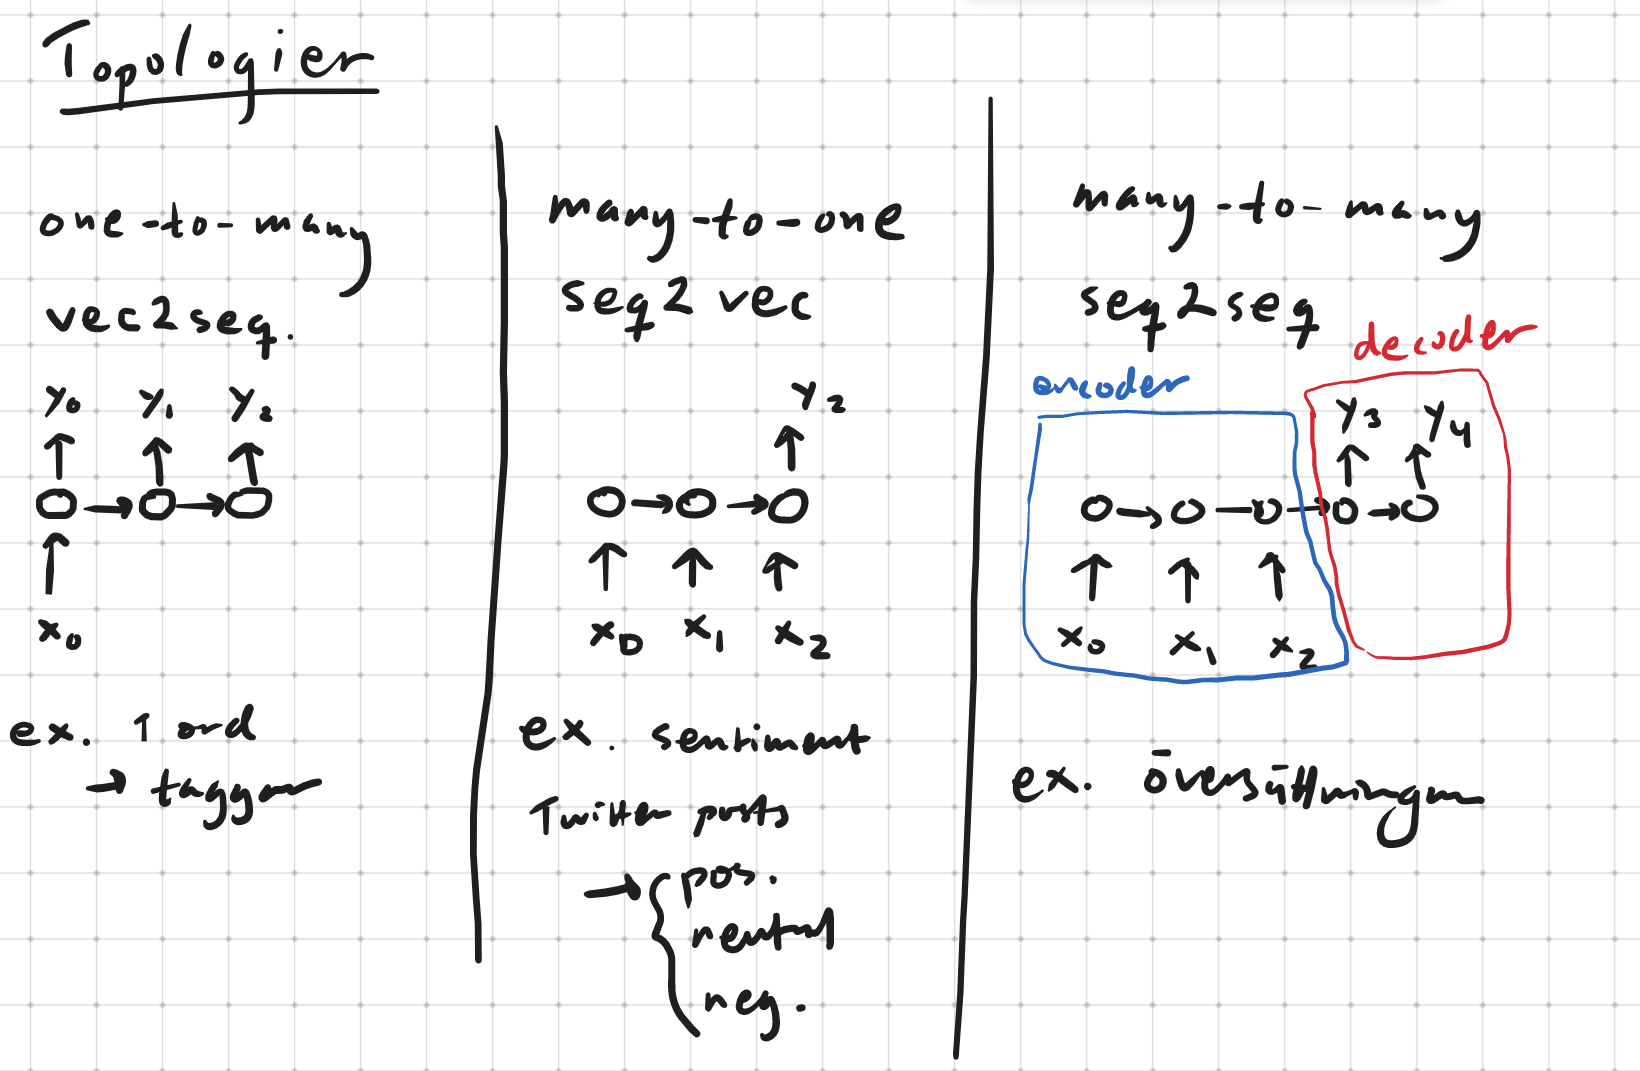 Topologier
one-to-many
vec2seq.
y0 y1 y2
x0
ex. 1 ord
→ taggar
many-to-one
seq2vec
y2
x0 x1 x2
ex. sentiment
Twitter posts
→ { pos.
neutral
neg.
many-to-many
seq2seq
decoder
encoder
y3 y4
x0 x1 x2
ex. översättningar